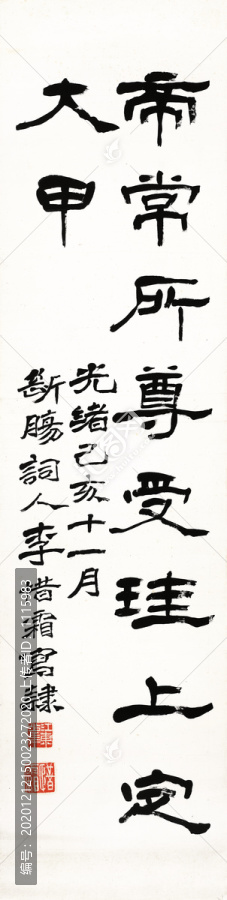 帝常所尊受珪上定
大甲
光绪己亥十一月
断肠詞人李惜霜昌隸
编号:20201212150023272020 上传者ID:1115983